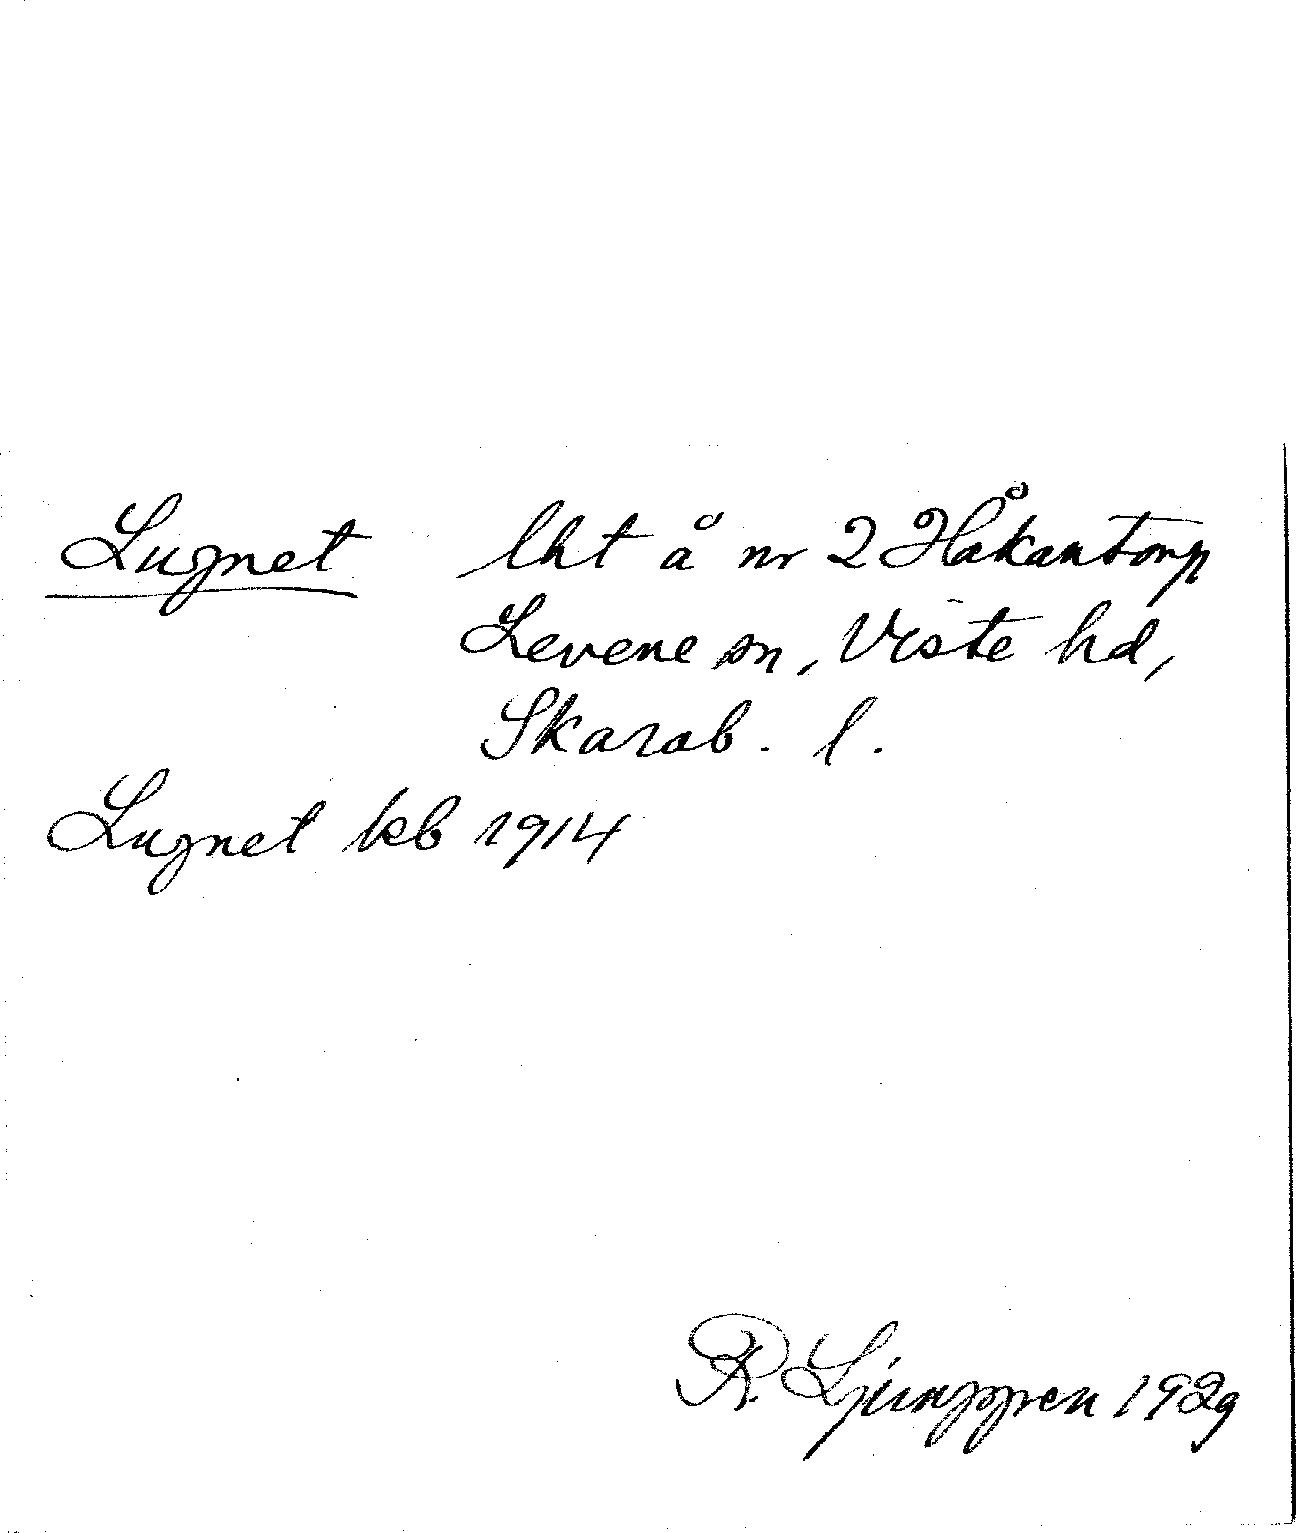 Lugnet lht å nr 2 Håkantorp
Levene sn, Viste hd,
Skarab. l.
Lugnet kb 1914
R. Ljunggren 1929